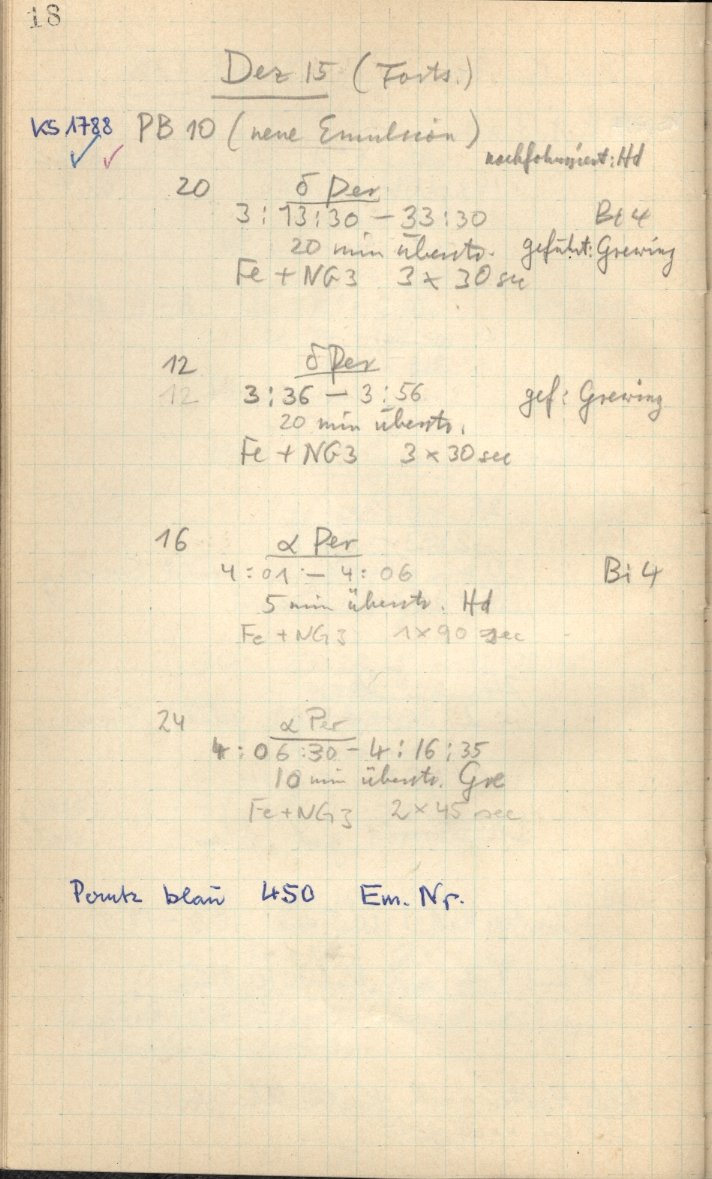 18
Dez 15 (Forts.)
KS 1788 PB 10 (neue Emulsion)
nachfokussiert: Hd
20 δ Per
3:13:30 – 33:30 Bi 4
20 min überstr. geführt: Grewing
Fe + NG3 3 x 30 sec
12 δ Per
12 3:36 – 3:56 gef: Grewing
20 min überstr.
Fe + NG3 3 x 30 sec
16 α Per
4:01 – 4:06 Bi 4
5 min überstr. Hd
Fe + NG3 1 x 90 sec
24 α Per
4:06:30 – 4:16:35
10 min überstr. Gre
Fe + NG3 2 x 45 sec
blau 450 Em. Nr.